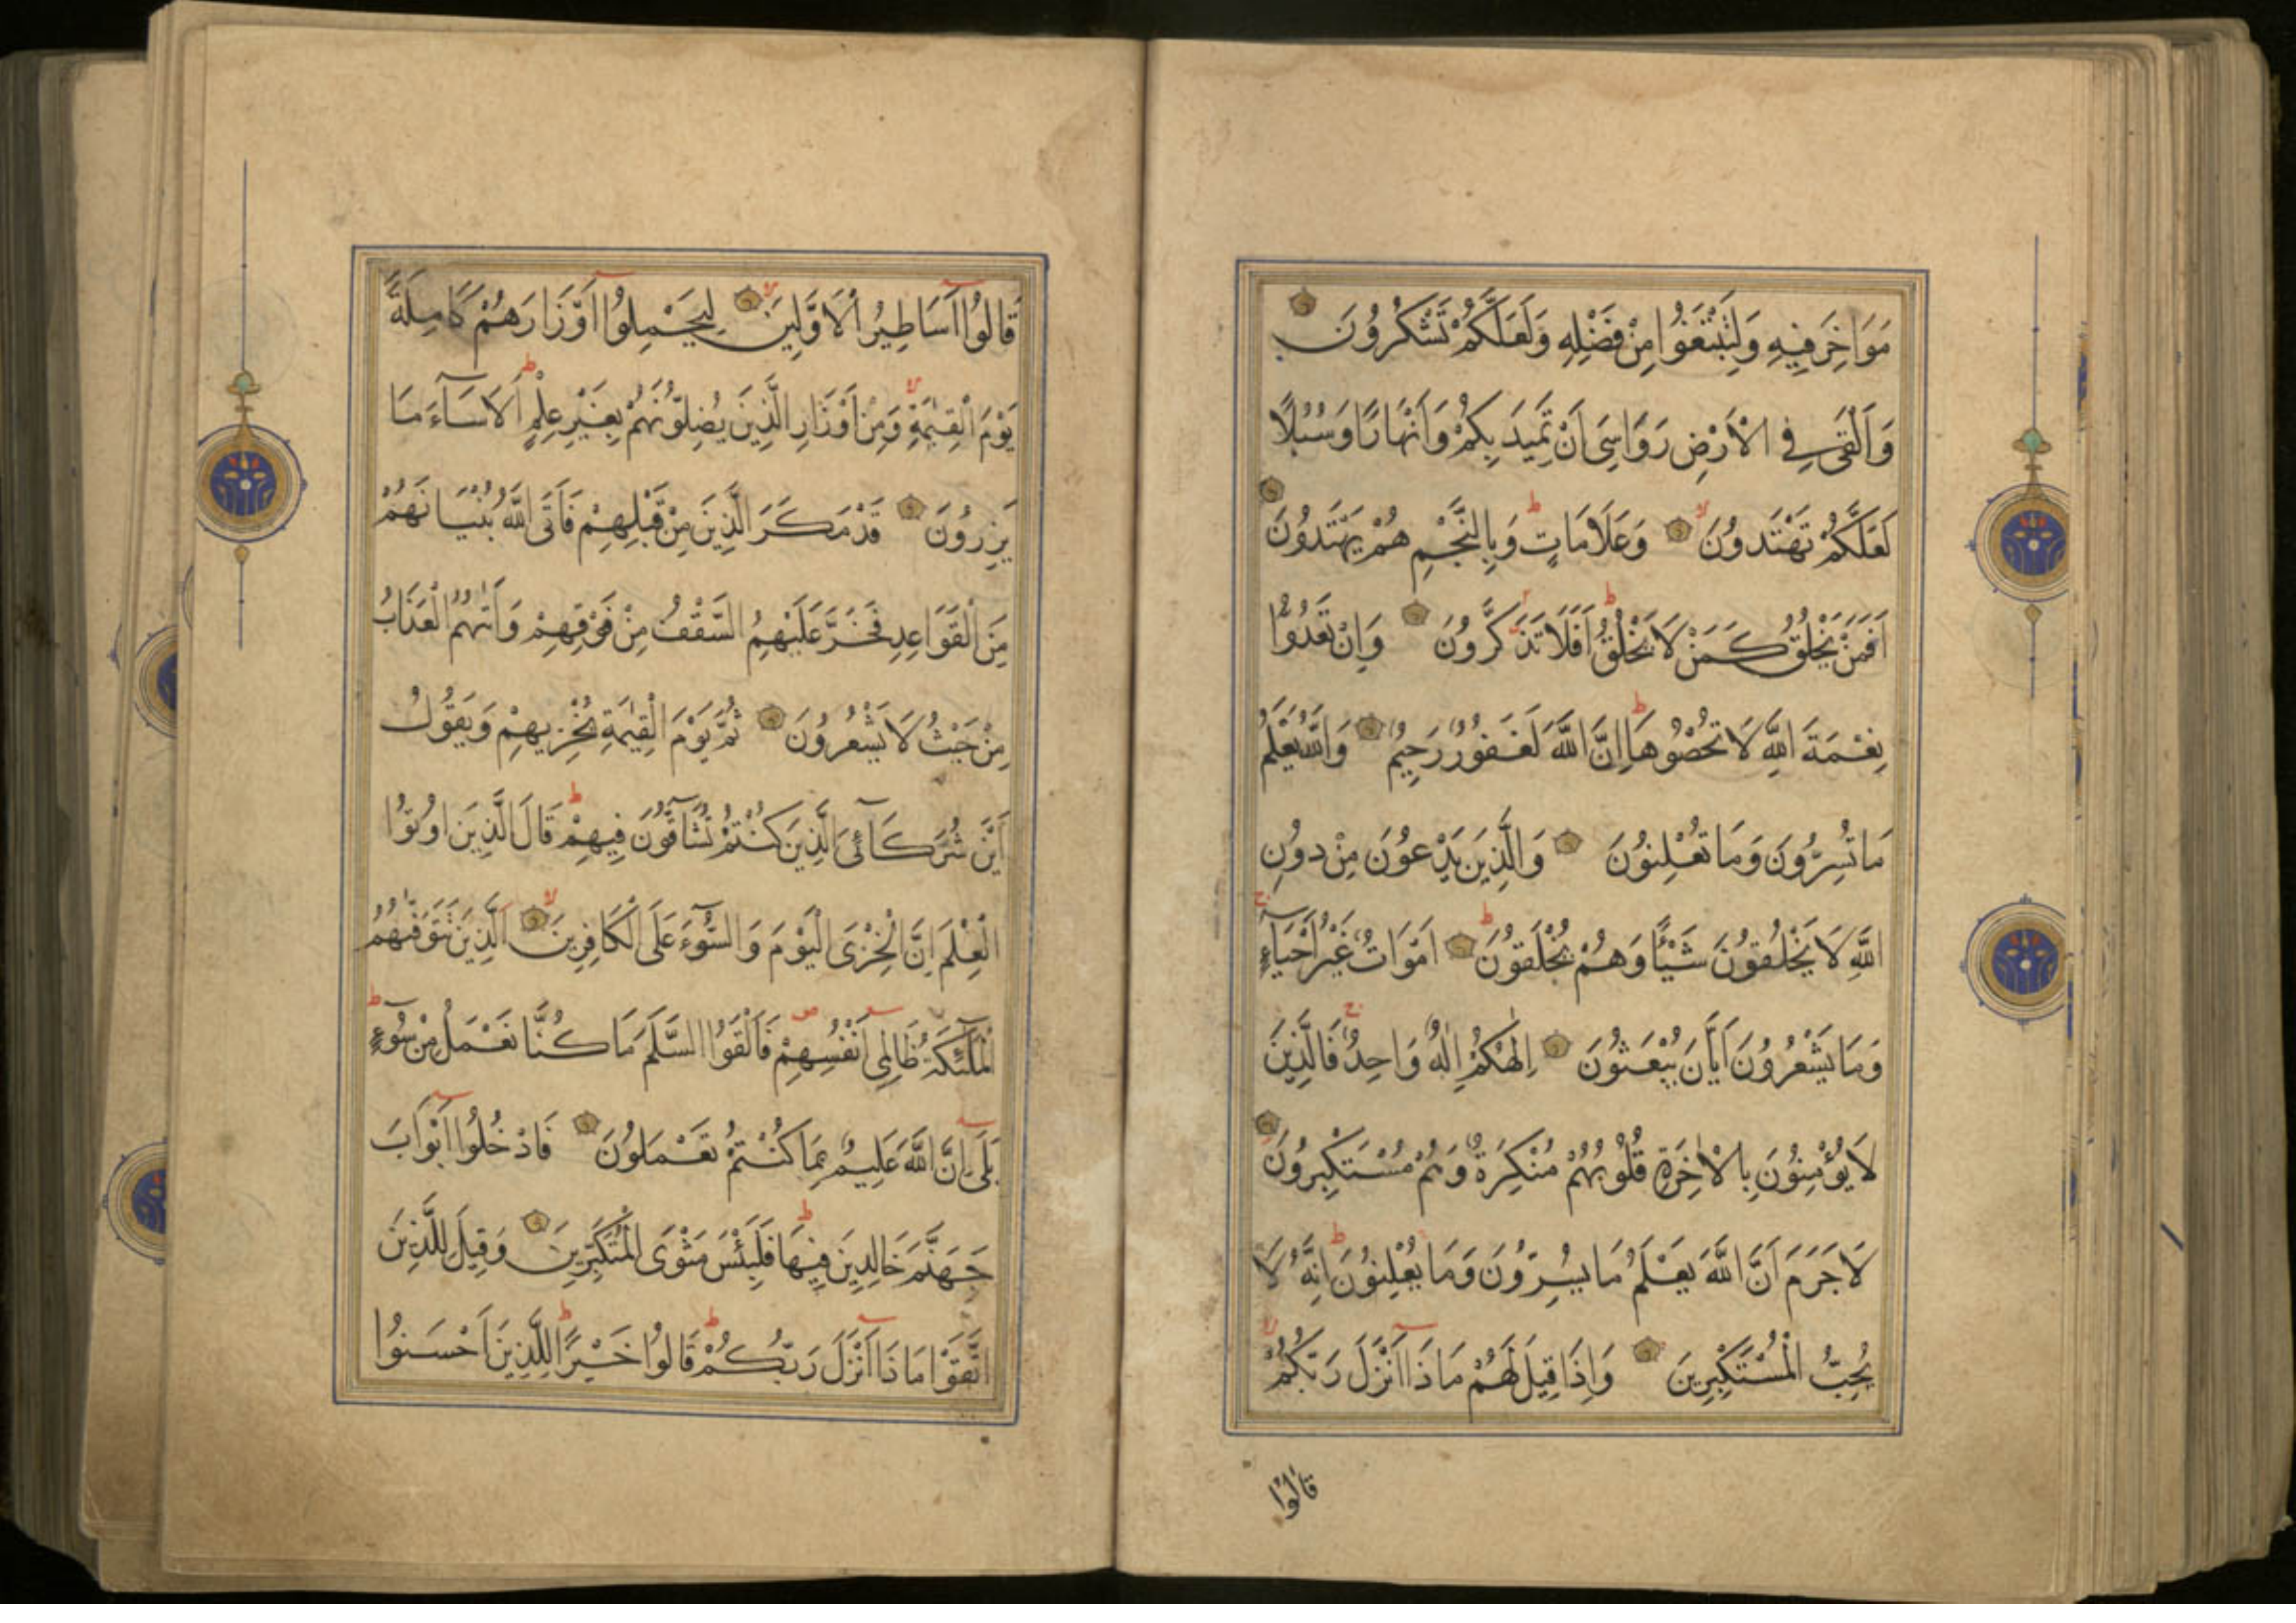 مَوَاخِرَ فِيهِ وَلِتَبْتَغُوا مِنْ فَضْلِهِ وَلَعَلَّكُمْ تَشْكُرُونَ
وَاَلْقٰى فِي الْاَرْضِ رَوَاسِيَ اَنْ تَمِيدَ بِكُمْ وَاَنْهَارًا وَسُبُلًا
لَعَلَّكُمْ تَهْتَدُونَ وَعَلَامَاتٍ وَبِالنَّجْمِ هُمْ يَهْتَدُونَ
اَفَمَنْ يَخْلُقُ كَمَنْ لَا يَخْلُقُ اَفَلَا تَذَكَّرُونَ وَاِنْ تَعُدُّوا
نِعْمَةَ اللّٰهِ لَا تُحْصُوهَا اِنَّ اللّٰهَ لَغَفُورٌ رَحِيمٌ وَاللّٰهُ يَعْلَمُ
مَا تُسِرُّونَ وَمَا تُعْلِنُونَ وَالَّذِينَ يَدْعُونَ مِنْ دُونِ
اللّٰهِ لَا يَخْلُقُونَ شَيْئًا وَهُمْ يُخْلَقُونَ اَمْوَاتٌ غَيْرُ اَحْيَآءٍ
وَمَا يَشْعُرُونَ اَيَّانَ يُبْعَثُونَ اِلٰهُكُمْ اِلٰهٌ وَاحِدٌ فَالَّذِينَ
لَا يُؤْمِنُونَ بِالْاٰخِرَةِ قُلُوبُهُمْ مُنْكِرَةٌ وَهُمْ مُسْتَكْبِرُونَ
لَا جَرَمَ اَنَّ اللّٰهَ يَعْلَمُ مَا يُسِرُّونَ وَمَا يُعْلِنُونَ اِنَّهُ لَا
يُحِبُّ الْمُسْتَكْبِرِينَ وَاِذَا قِيلَ لَهُمْ مَاذَا اَنْزَلَ رَبُّكُمْ
قَالُوا
قَالُوا اَسَاطِيرُ الْاَوَّلِينَ لِيَحْمِلُوا اَوْزَارَهُمْ كَامِلَةً
يَوْمَ الْقِيٰمَةِ وَمِنْ اَوْزَارِ الَّذِينَ يُضِلُّونَهُمْ بِغَيْرِ عِلْمٍ اَلَا سَآءَ مَا
يَزِرُونَ قَدْ مَكَرَ الَّذِينَ مِنْ قَبْلِهِمْ فَاَتَى اللّٰهُ بُنْيَانَهُمْ
مِنَ الْقَوَاعِدِ فَخَرَّ عَلَيْهِمُ السَّقْفُ مِنْ فَوْقِهِمْ وَاَتٰيهُمُ الْعَذَابُ
مِنْ حَيْثُ لَا يَشْعُرُونَ ثُمَّ يَوْمَ الْقِيٰمَةِ يُخْزِيهِمْ وَيَقُولُ
اَيْنَ شُرَكَآئِيَ الَّذِينَ كُنْتُمْ تُشَآقُّونَ فِيهِمْ قَالَ الَّذِينَ اُوتُوا
الْعِلْمَ اِنَّ الْخِزْيَ الْيَوْمَ وَالسُّوٓءَ عَلَى الْكَافِرِينَ اَلَّذِينَ تَتَوَفّٰيهُمُ
الْمَلٰٓئِكَةُ ظَالِمِي اَنْفُسِهِمْ فَاَلْقَوُا السَّلَمَ مَا كُنَّا نَعْمَلُ مِنْ سُوٓءٍ
بَلٰى اِنَّ اللّٰهَ عَلِيمٌ بِمَا كُنْتُمْ تَعْمَلُونَ فَادْخُلُوا اَبْوَابَ
جَهَنَّمَ خَالِدِينَ فِيهَا فَلَبِئْسَ مَثْوَى الْمُتَكَبِّرِينَ وَقِيلَ لِلَّذِينَ
اتَّقَوْا مَاذَا اَنْزَلَ رَبُّكُمْ قَالُوا خَيْرًا لِلَّذِينَ اَحْسَنُوا